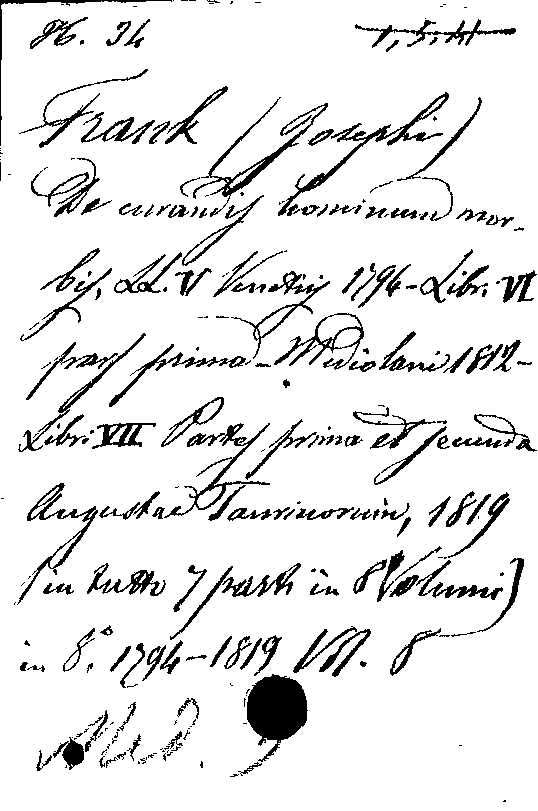 H. 34 1, 5, 41
Frank (Josephi)
De curandis hominum mor-
bis, LL. V Venetiis 1794 - Libri VI
pars prima - Mediolani 1812 -
Libri VII Partes prima et secunda
Augustae Taurinorum, 1819
(in tutto 7 parti in 8 Volumi)
in 8.° 1794-1819 Vll. 8
Med.